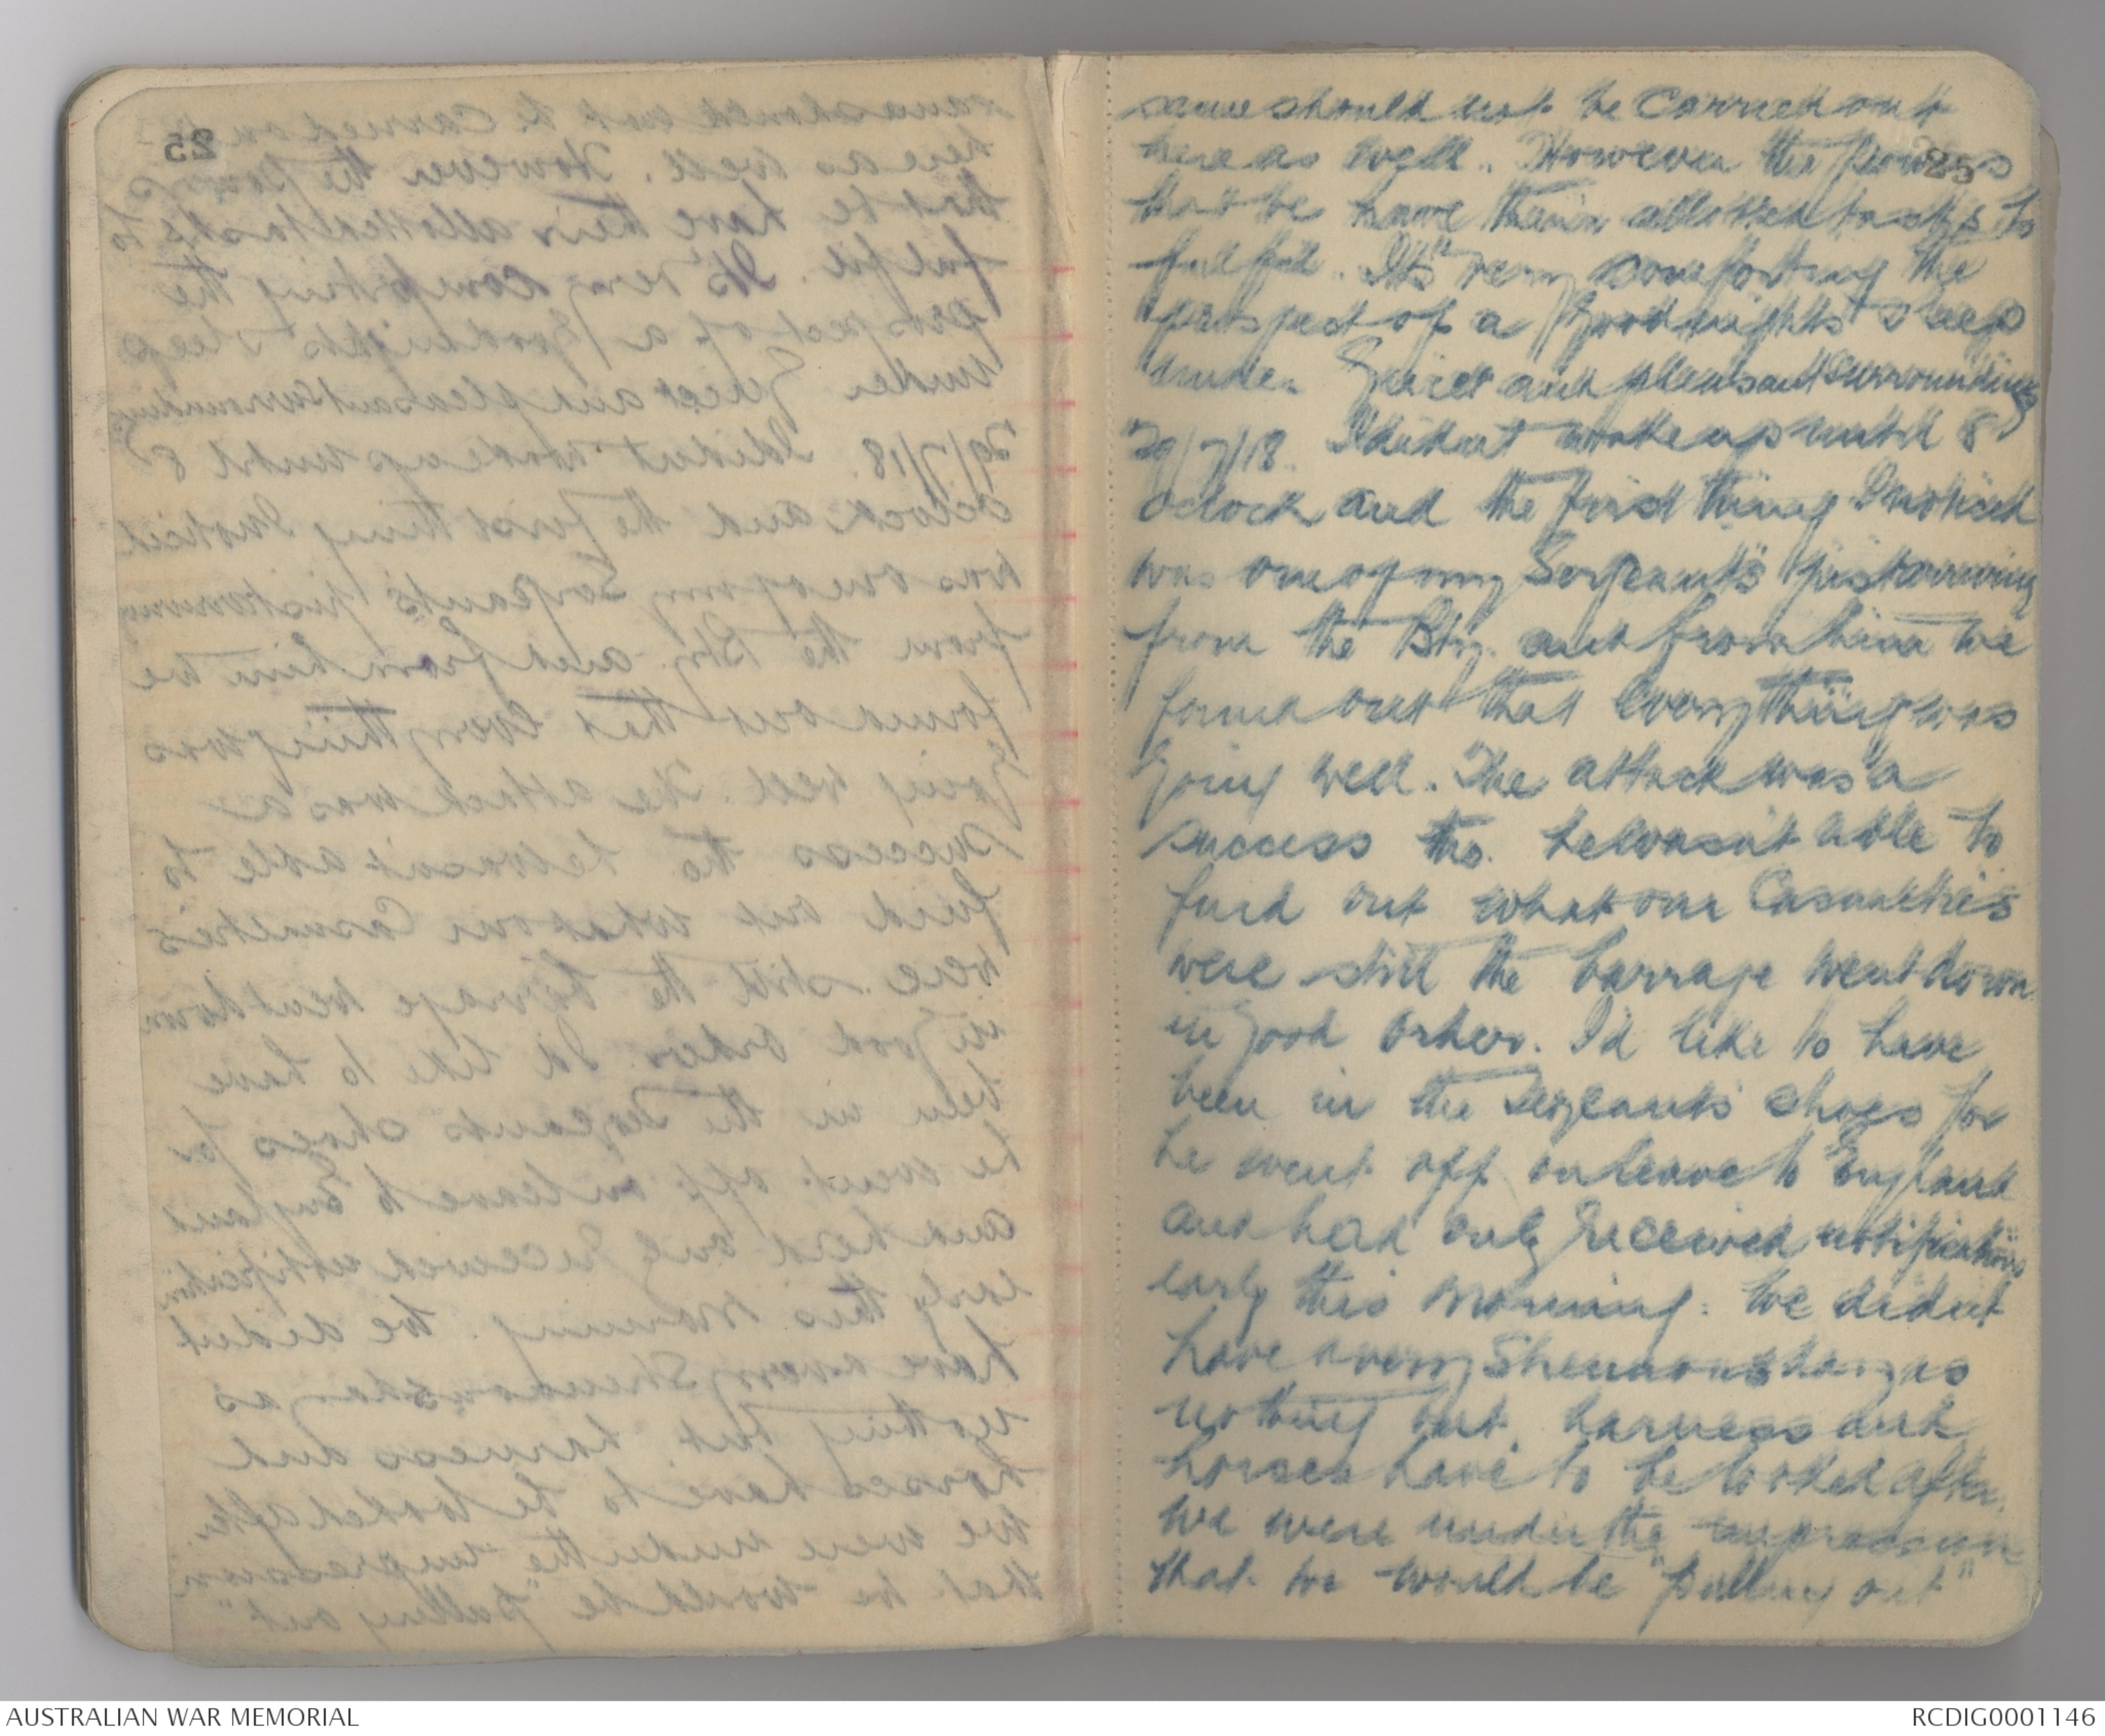 25
same should not be carried out
here as well. However the powers
that be have their allotted tasks to
fulfil. It's very comforting the
prospect of a good night's sleep
under quiet and pleasant surroundings
29/7/18. I didnt wake up until 8
oclock and the first thing I noticed
was one of my Sergeants just arriving
from the Bty. and from him we
found out that everything was
going well. The attack was a
success tho. he wasn't able to
find out what our Casualties
were still the barrage went down
in good order. I'd like to have
been in the Sergeants shoes for
he went off on leave to England
and had only received notification
early this morning. We didnt
have a very strenuous day as
nothing but harness and
horses have to be looked after.
We were under the impression
that we would be "pulling out"
AUSTRALIAN WAR MEMORIAL
RCDIG0001146